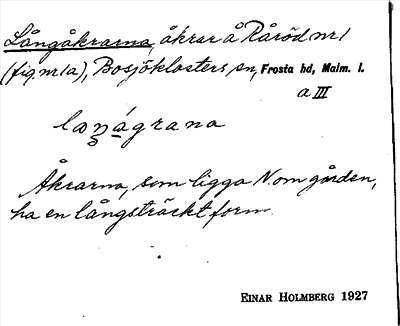 Långåkrarna, åkrar å Råröd nr 1
(fig. nr 1a), Bosjöklosters sn, Frosta hd, Malm. l.
a III
laŋágrana
Åkrarna, som ligga N. om gården,
ha en långsträckt form.
EINAR HOLMBERG 1927